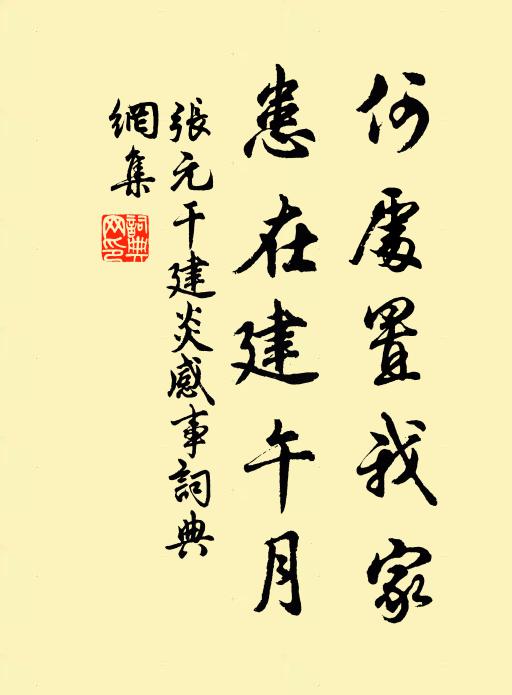 何處置我家
患在建午月
張元干建炎感事詞典
網集
詞典網印